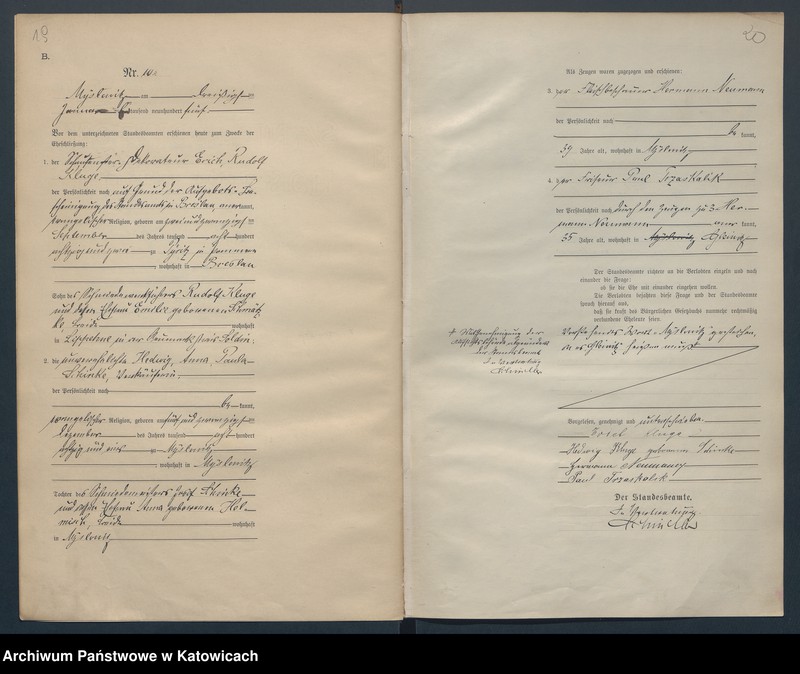 19
B.
Nr. 10.
Myslowitz, am dreißigsten
Januar tausend neunhundert fünf
Vor dem unterzeichneten Standesbeamten erschienen heute zum Zwecke der
Eheschließung:
1. der Dekorateur Erich, Rudolf
Kluge
der Persönlichkeit nach auf Grund der Aufgebots-Be-
scheinigung des Standesamts in Breslau anerkannt,
evangelischer Religion, geboren am zweiundzwanzigsten
September des Jahres tausend acht hundert
achtzig und zwei zu Pyritz in Pommern
, wohnhaft in Breslau
Sohn des Rudolf Kluge
und dessen Ehefrau Emilie geborenen
beide wohnhaft
in Lippehne in der Neumark, Kreis Soldin.
2. die unverehelichte Hedwig, Anna, Paula
Schinke, Verkäuferin
der Persönlichkeit nach
be kannt,
evangelischer Religion, geboren am fünf und zwanzigsten
Dezember des Jahres tausend acht hundert
achtzig und eins zu Myslowitz
, wohnhaft in Myslowitz
Tochter des Schmiedemeisters Josef Schinke
und dessen Ehefrau Anna geborenen
beide wohnhaft
in Myslowitz
20
Als Zeugen waren zugezogen und erschienen:
3. der Fleischbeschauer Hermann Neumann
der Persönlichkeit nach
be kannt,
59 Jahre alt, wohnhaft in Myslowitz
4. der Friseur Paul Trzaskalik
der Persönlichkeit nach durch den Zeugen zu 3 Her-
mann Neumann aner kannt,
35 Jahre alt, wohnhaft in Myslowitz Gleiwitz
Der Standesbeamte richtete an die Verlobten einzeln und nach
einander die Frage:
ob sie die Ehe mit einander eingehen wollen.
Die Verlobten bejahten diese Frage und der Standesbeamte
sprach hierauf aus,
daß sie kraft des Bürgerlichen Gesetzbuchs nunmehr rechtmäßig
verbundene Eheleute seien.
Vorstehend Wort "Myslowitz" gestrichen,
Gleiwitz heißen muß.
Der Standesbeamte
In Vertretung
Vorgelesen, genehmigt und unterschrieben
Erich Kluge
Hedwig Kluge geborene Schinke
Hermann Neumann
Paul Trzaskalik
Der Standesbeamte.
In Vertretung
Archiwum Państwowe w Katowicach